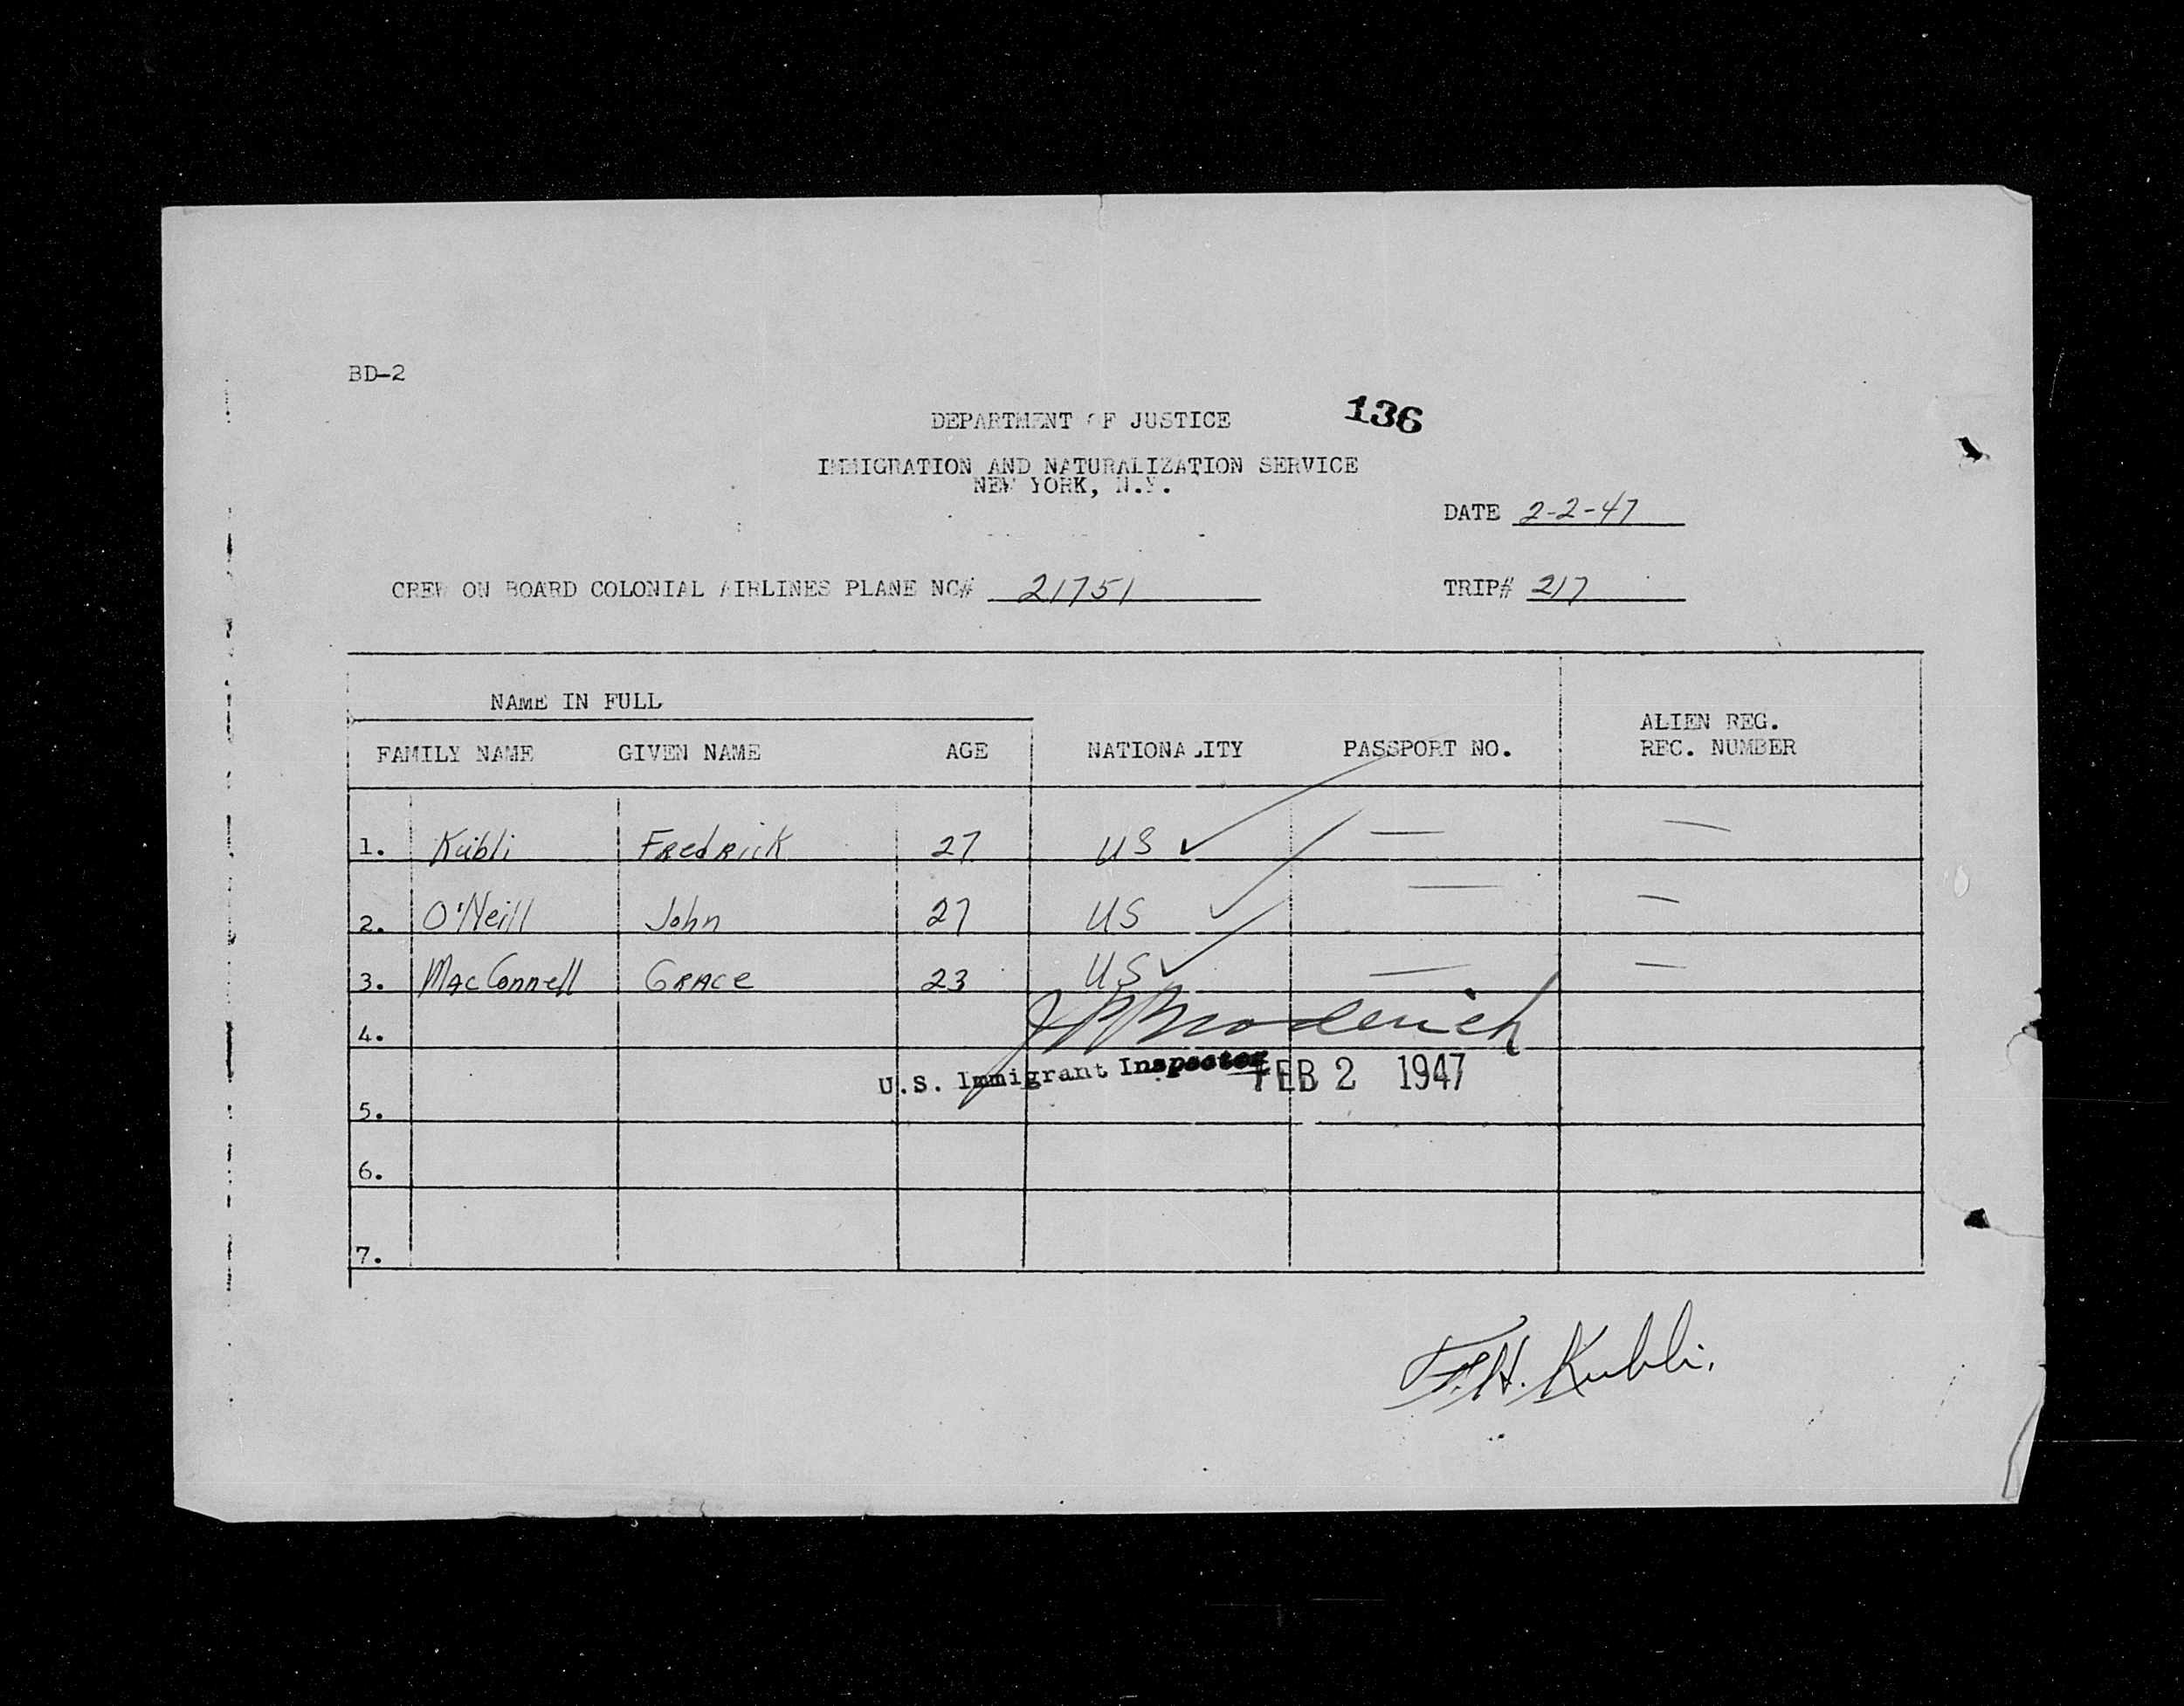 BD-2
DEPARTMENT OF JUSTICE 136
IMMIGRATION AND NATURALIZATION SERVICE
NEW YORK, N.Y.
DATE 2-2-47
CREW ON BOARD COLONIAL AIRLINES PLANE NC# 21751 TRIP# 217
NAME IN FULL
FAMILY NAME GIVEN NAME AGE NATIONALITY PASSPORT NO. ALIEN REG. REC. NUMBER
1. Kubli Fredrick 27 US ✓ — —
2. O'Neill John 27 US ✓ — —
3. MacConnell Grace 23 US ✓ — —
4. Broderick
U.S. Immigrant Inspector FEB 2 1947
5.
6.
7.
F.H. Kubli.